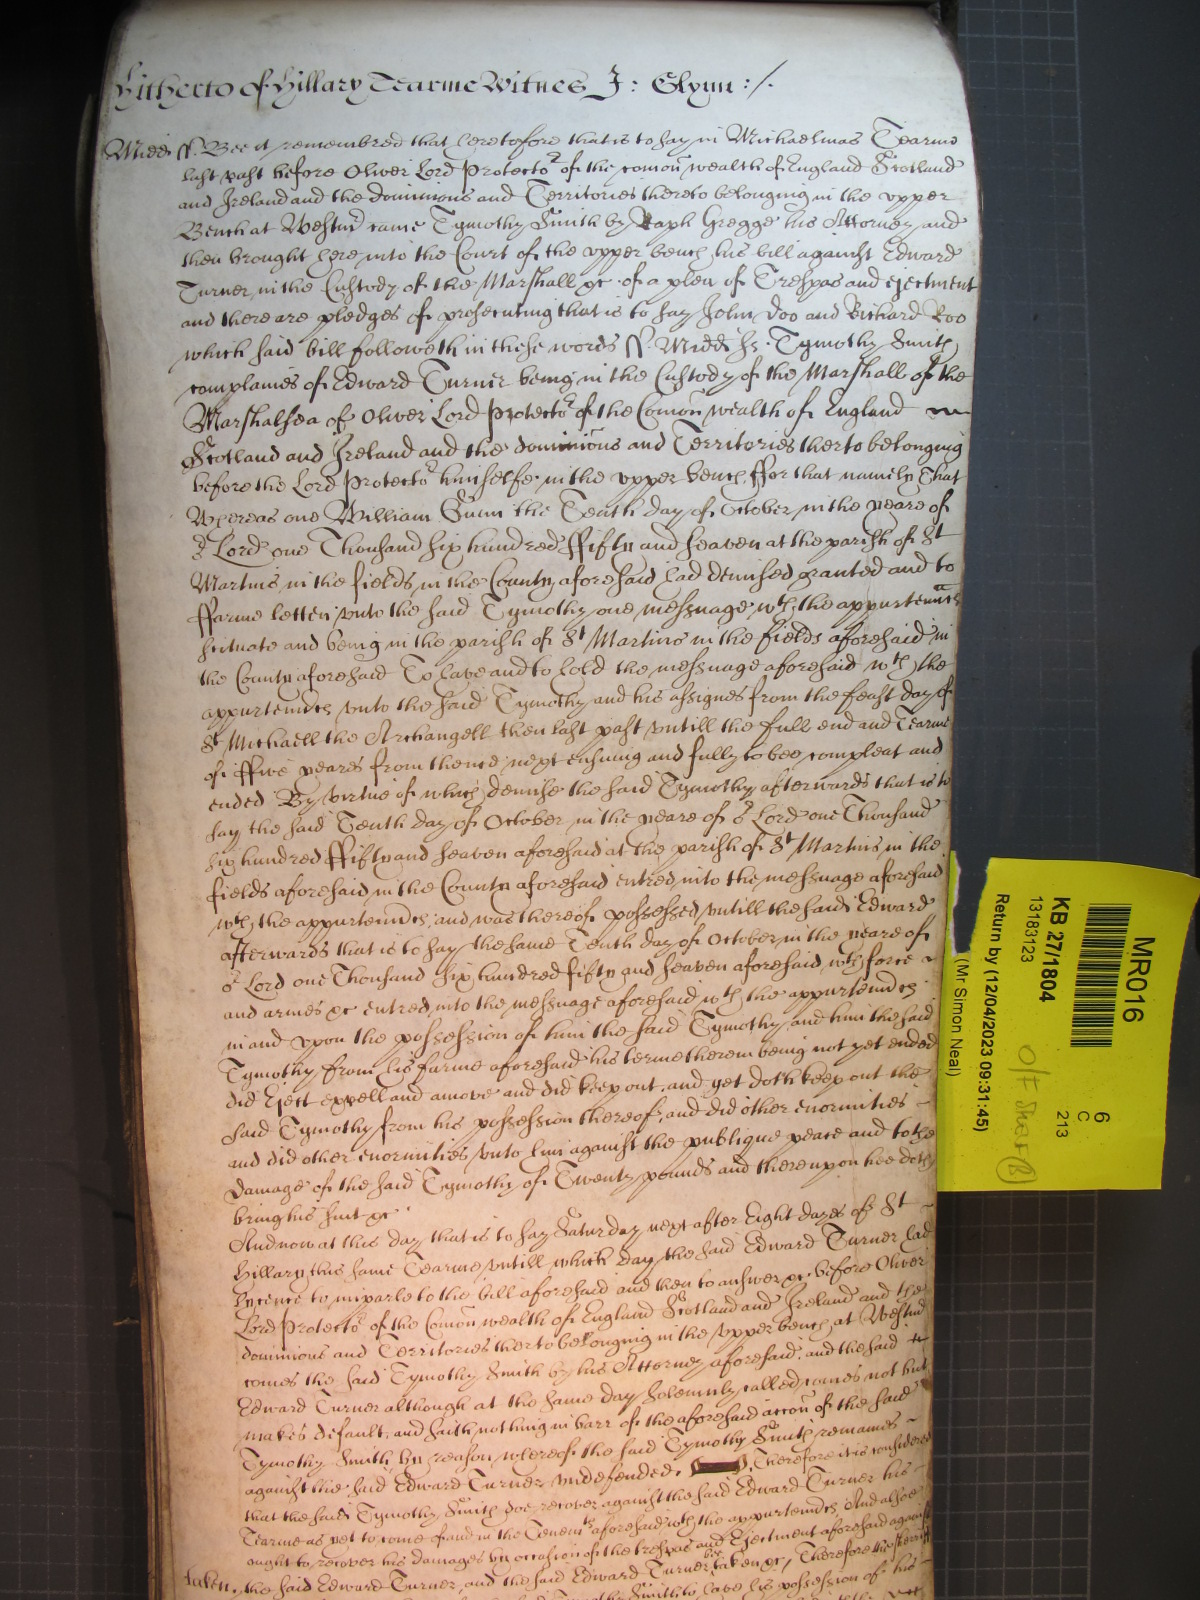 Hitherto of Hillary Tearme Witnes J: Glynn :/.
Midds ss. Bee it remembred that heretofore that is to say in Michaelmas Tearme
last past before Oliver Lord Protector of the comon wealth of England Scotland
and Ireland and the dominions and Territories thereto belonging in the vpper
Bench at Westmr came Tymothy Smith by Raph Gregge his Attorney and
then brought here into the Court of the vpper bench his bill against Edward
Turner in the Custody of the Marshall &c of a plea of Trespas and ejectment
and there are pledges of prosecuting that is to say John Doo and Richard Roo
which said bill followeth in these words ss. Midds ss. Tymothy Smith
complaines of Edward Turner being in the Custody of the Marshall of the
Marshalsea of Oliver Lord Protector of the Comon wealth of England
Scotland and Ireland and the dominions and Territories therto belonging
before the Lord Protector himselfe in the vpper bench ffor that namely That
Whereas one William Gunn the Tenth day of October in the yeare of
or Lord one Thousand six hundred ffifty and seaven at the parish of St
Martins in the fields in the County aforesaid had demised granted and to
ffarme letten vnto the said Tymothy one messuage wth the appurtenncs
scituate and being in the parish of St Martins in the fields aforesaid in
the County aforesaid To have and to hold the messuage aforesaid wth the
appurtenncs vnto the said Tymothy and his assignes from the feast day of
St Michaell the Archangell then last past vntill the full end and Tearme
of ffive yeares from thence next ensuing and fully to bee compleat and
ended By virtue of which demise the said Tymothy afterwards that is to
say the said Tenth day of October in the yeare of or Lord one Thousand
six hundred ffifty and seaven aforesaid at the parish of St Martins in the
fields aforesaid in the County aforesaid entred into the messuage aforesaid
wth the appurtenncs and was thereof possessed vntill the said Edward
afterwards that is to say the same Tenth day of October in the yeare of
or Lord one Thousand six hundred fifty and seaven aforesaid wth force
and armes &c entred into the messuage aforesaid wth the appurtenncs
in and vpon the possession of him the said Tymothy and him the said
Tymothy from his farme aforesaid his terme therein being not yet ended
did Eject expell and amove and did keep out and yet doth keep out the
said Tymothy from his possession thereof, and did other enormities
and did other enormities vnto him against the publique peace and to the
damage of the said Tymothy of Twenty pounds and therevpon hee doth
bring his suit &c
And now at this day that is to say Saturday next after Eight dayes of St
Hillary this same Tearme vntill which day the said Edward Turner had
lycence to imparle to the bill aforesaid and then to answer &c before Oliver
Lord Protector of the Comon wealth of England Scotland and Ireland and the
dominions and Territories therto belonging in the vpper bench at Westmr
comes the said Tymothy Smith by his Attorney aforesaid, and the said
Edward Turner although at the same day solemnly called comes not but
makes default, and saith nothing in barr of the aforesaid accon of the said
Tymothy Smith by reason whereof the said Tymothy Smith remaines
against the said Edward Turner vndefended. Therefore it is considered
that the said Tymothy Smith doe recover against the said Edward Turner his
Tearme as yet to come of and in the Tenemts aforesaid wth the appurtenncs And alsoe
ought to recover his damages by occasion of the trespas and Ejectment aforesaid against
taken. the said Edward Turner, and the said Edward Turner bee taken &c, Therefore the sherriff
Smith to have his possession of his
MR016
KB 27/1804
13183123
Return by (12/04/2023 09:31:45)
(Mr Simon Neal)
6
C
213